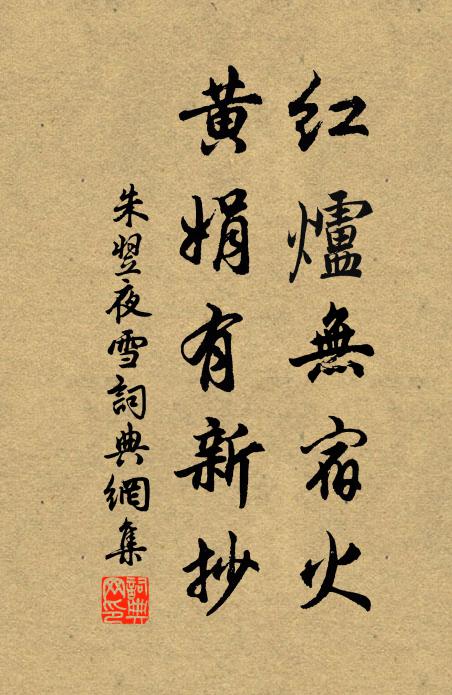 红爐無宿火
黄娟有新抄
朱翌夜雪詞典網集
詞典網印